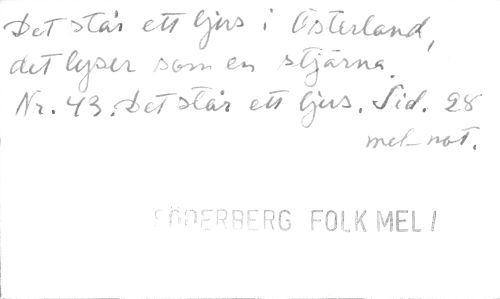 Det står ett ljus i Österland,
det lyser som en stjärna.
Nr. 43. Det står ett ljus. Sid. 28
mel-not.
SÖDERBERG FOLK MEL /